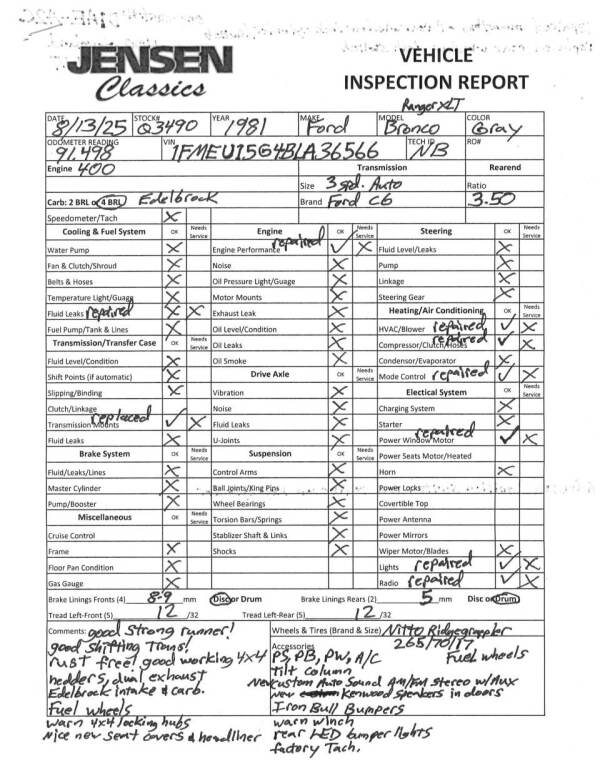 JENSEN
Classics
VEHICLE
INSPECTION REPORT
Ranger XLT
DATE 8/13/25 STOCK# Q3490 YEAR 1981 MAKE Ford MODEL Bronco COLOR Gray
ODOMETER READING 91,498 VIN 1FMEU15G4BLA36566 TECH ID NB RO#
Engine 400 Transmission Rearend
Size 3 spd. Auto Ratio
Carb: 2 BRL or 4 BRL Edelbrock Brand Ford C6 3.50
Speedometer/Tach X
Cooling & Fuel System OK Needs Service Engine OK Needs Service Steering OK Needs Service
Water Pump X Engine Performance repaired ✓ X Fluid Level/Leaks X
Fan & Clutch/Shroud X Noise X Pump X
Belts & Hoses X Oil Pressure Light/Guage X Linkage X
Temperature Light/Guage X Motor Mounts X Steering Gear X
Fluid Leaks repaired X X Exhaust Leak X Heating/Air Conditioning OK Needs Service
Fuel Pump/Tank & Lines X Oil Level/Condition X HVAC/Blower repaired ✓ X
Transmission/Transfer Case OK Needs Service Oil Leaks X Compressor/Clutch/Hoses repaired ✓ X
Fluid Level/Condition X Oil Smoke X Condensor/Evaporator X
Shift Points (if automatic) X Drive Axle OK Needs Service Mode Control repaired ✓ X
Slipping/Binding X Vibration X Electical System OK Needs Service
Clutch/Linkage Noise X Charging System X
Transmission Mounts replaced ✓ X Fluid Leaks X Starter X
Fluid Leaks X U-Joints X Power Window Motor repaired ✓ X
Brake System OK Needs Service Suspension OK Needs Service Power Seats Motor/Heated
Fluid/Leaks/Lines X Control Arms X Horn X
Master Cylinder X Ball Joints/King Pins X Power Locks
Pump/Booster X Wheel Bearings X Covertible Top
Miscellaneous OK Needs Service Torsion Bars/Springs X Power Antenna
Cruise Control Stablizer Shaft & Links X Power Mirrors
Frame X Shocks X Wiper Motor/Blades X
Floor Pan Condition X Lights repaired ✓ X
Gas Gauge X Radio repaired ✓ X
Brake Linings Fronts (4) 8-9 mm Disc or Drum Brake Linings Rears (2) 5 mm Disc or Drum
Tread Left-Front (5) 12 /32 Tread Left-Rear (5) 12 /32
Comments: good strong runner!
good shifting Trans!
rust free! good working 4x4
hedders, dual exhaust
Edelbrock intake & carb.
Fuel wheels
warn 4x4 locking hubs
Nice new seat covers & headliner
Wheels & Tires (Brand & Size) Nitto Ridgegrappler
265/70/17
Fuel wheels
Accessories
PS, PB, PW, A/C
tilt column
New custom Auto Sound AM/FM Stereo w/Aux
new Kenwood speakers in doors
Iron Bull Bumpers
warn winch
rear LED bumper lights
factory Tach.